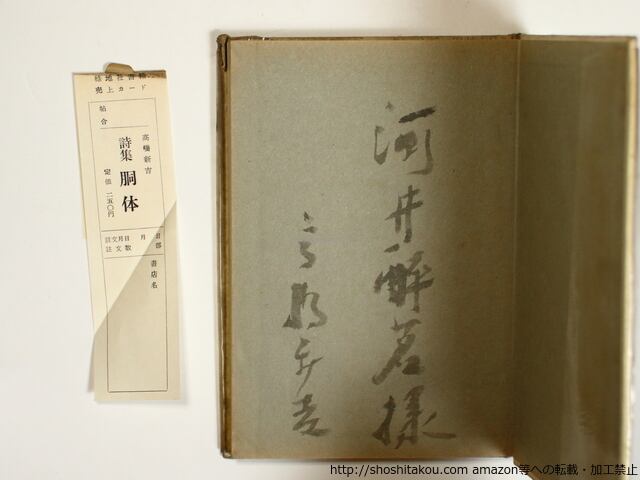 緑地社書籍
売上カード
帖合
高橋新吉
詩集 胴体
定価 二五〇円
註文月日 月 日
註文数 部
書店名
河井酔茗様
高橋新吉
http://shoshitakou.com amazon等への転載・加工禁止